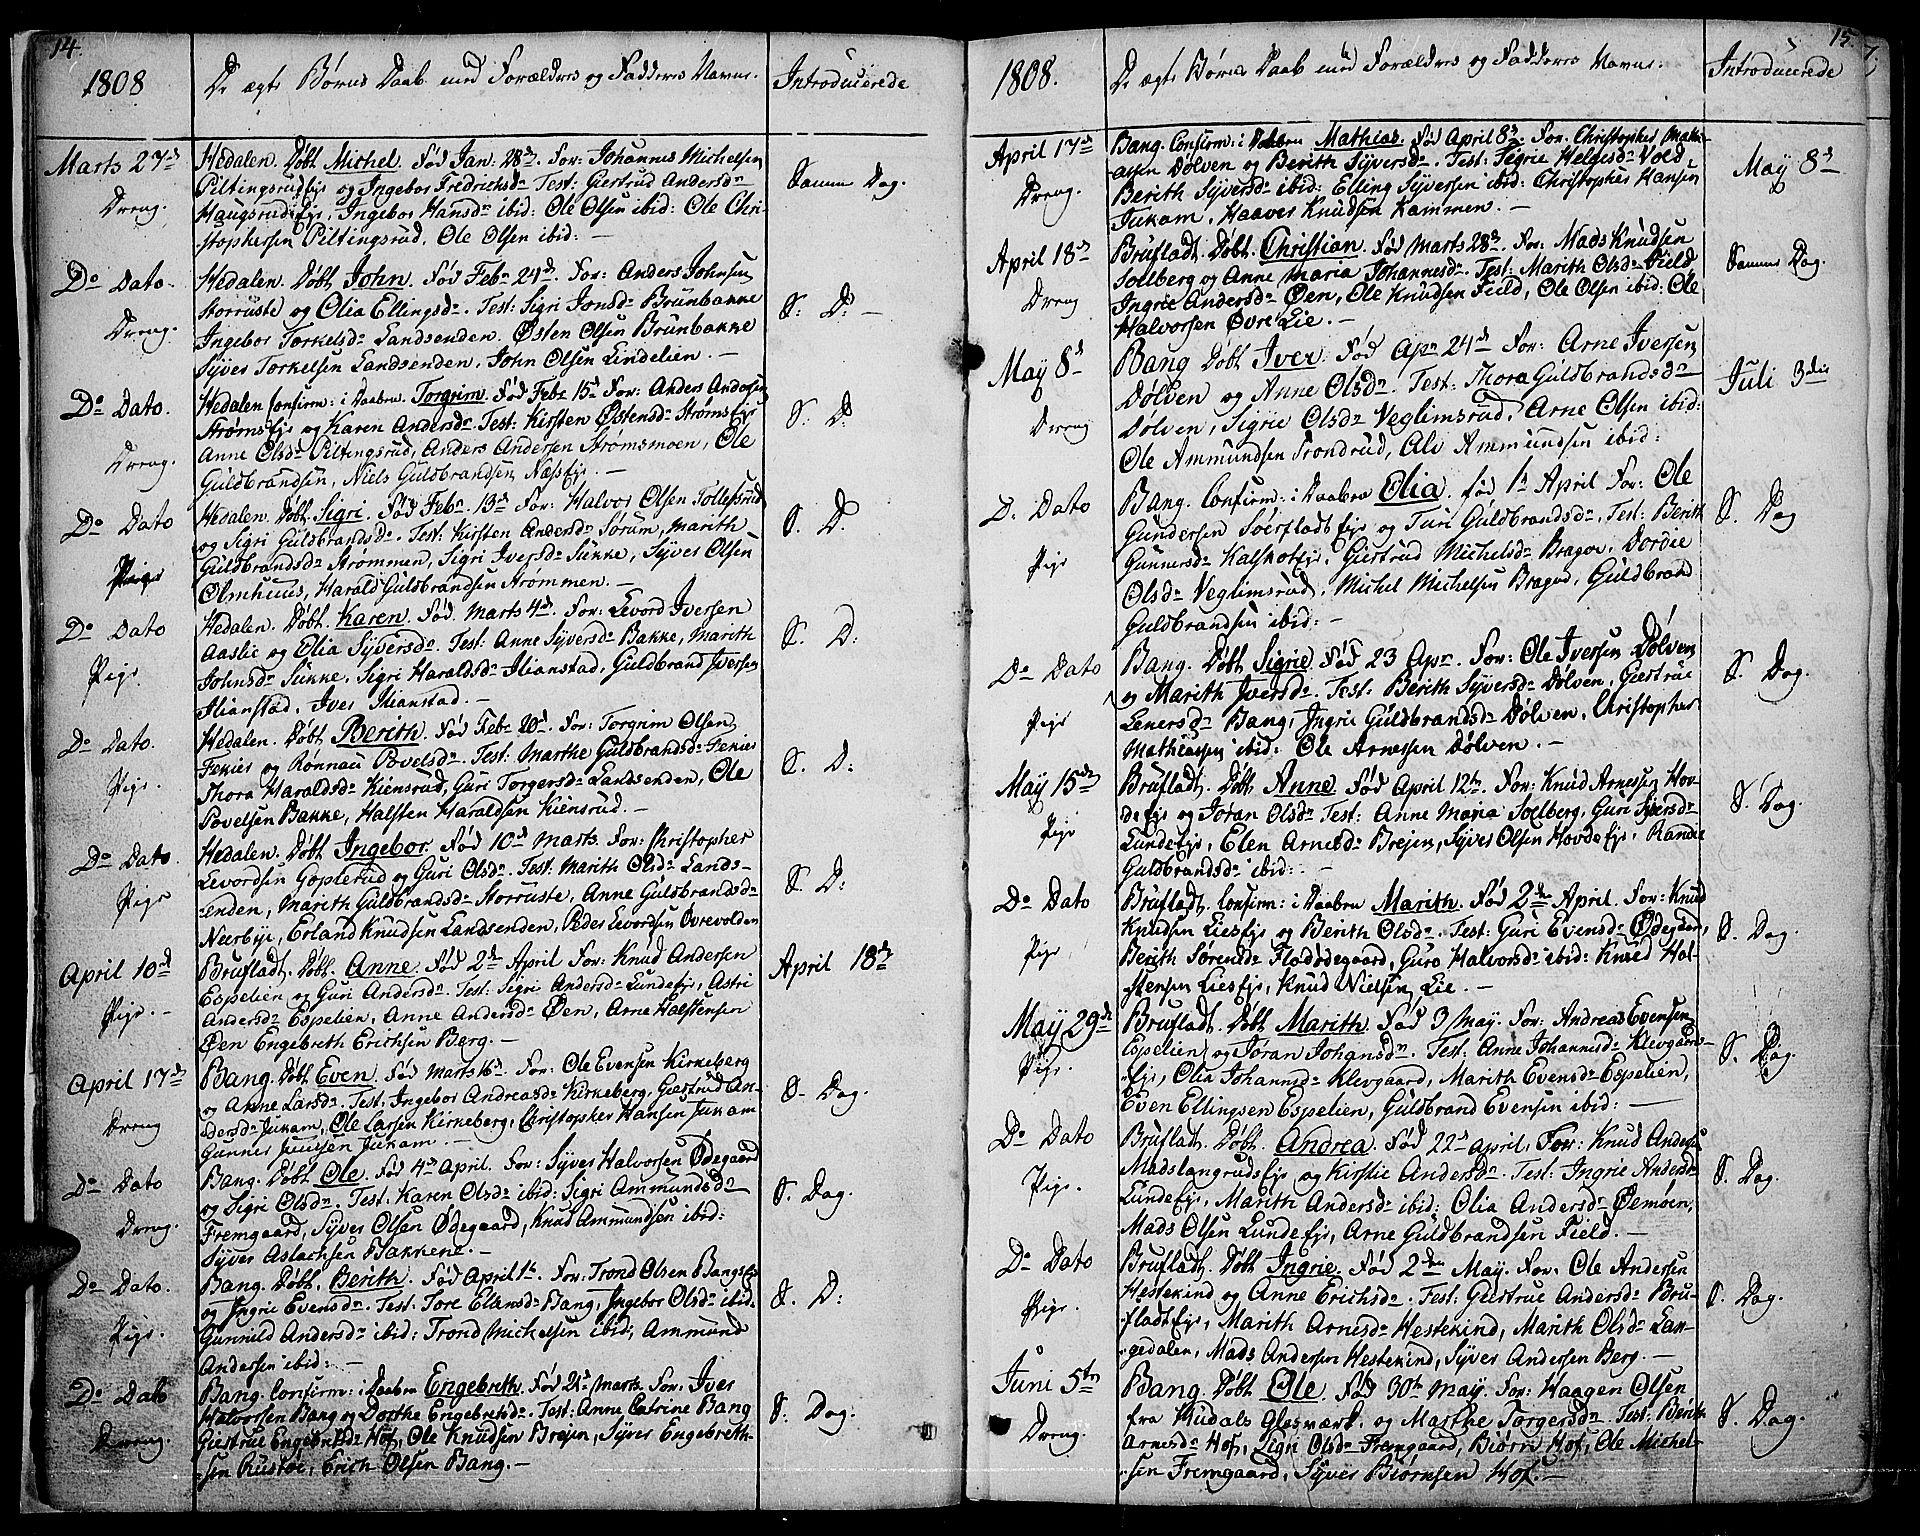 14.
1808
De ægte Børns Daab med Forældres og Fadderes Navne.
Introducerede
Marts 27de
Dreng.
Hedalen. Døbt Michel. Fød Jan. 28de. For: Johannes Michelsen
Piltingsrudeje og Ingebor Fredrichsdr. Test: Giertrud Andersdr
Haugsrudeje, Ingebor Hansdr ibid: Ole Olsen ibid: Ole Chri-
stophersen Piltingsrud, Ole Olsen ibid: —
Samme Dag.
Do Dato.
Dreng.
Hedalen. Døbt John. Fød Febr 24de. For: Anders Johnsen
Storruste og Olia Ellingsdr. Test: Sigri Jonsdr Brunbakke
Ingebor Torkelsdr Landsenden. Østen Olsen Brunbakke
Syver Torkelsen Landsenden. John Olsen Lindelien. —
S: D: —
Do Dato.
Dreng.
Hedalen Confirm: i Daaben Torgrim. Fød Febr 15d For: Anders Andersen
Strømseje og Karen Andersdr. Test: Kirsten Østensdr Strømseje
Anne Olsdr Piltingsrud, Anders Andersen Strømsmoen, Ole
Guldbrandsen, Niels Guldbrandsen Næsseje. —
S. D:
Do Dato
Pige
Hedalen. Døbt Sigri. Fød Febr. 13de For: Halvor Olsen Tollefsrud
og Sigri Guldbrandsdr. Test: Kirsten Andersdr Sørum, Marith
Guldbrandsdr Strømmen, Sigri Iversdr Sukke, Syver Olsen
Olmhuus, Harald Guldbrandsen Strømmen. —
S. D.
Do Dato
Pige
Hedalen. Døbt Karen. Fød Marts 4de. For: Levord Iversen
Aaslie og Olia Syversdr. Test: Anne Syversdr Bakke, Marith
Johnsdr Sukke, Sigri Haraldsdr Ilianstad, Guldbrand Iversen
Ilianstad, Iver Ilianstad. —
S. D:
Do Dato.
Pige.
Hedalen. Døbt Berith. Fød Febr 20de. For: Torgrim Olsen
Fekier og Ronnau Povelsdr. Test: Marthe Guldbrandsdr Fekier
Thora Haraldsdr Kiensrud, Guri Torgersdr Landsenden, Ole
Povelsen Bakke, Halsten Haraldsen Kiensrud. —
S. D:
Do Dato
Pige
Hedalen. Døbt Ingebor. Fød 10de Marts. For: Christopher
Levordsen Goplerud og Guri Olsdr. Test: Marith Olsdr Lands-
-enden, Marith Guldbrandsdr Storruste, Anne Guldbrandsdr
Neerbye, Erland Knudsen Landsenden, Peder Levordsen Øvrevolden
S. D:
April 10de
Pige. —
Brufladt. Døbt Anne. Fød 2de April For: Knud Andersen
Espelien og Guri Andersdr. Test: Sigri Andersdr Lundeje, Astri
Andersdr Espelien, Anne Andersdr Øen, Arne Halstensen
Øen Engebreth Erichsen Berg. —
April 18de
April 17de
Dreng
Bang. Døbt Even. Fød Marts 16de. For: Ole Evensen Kirkeberg
og Anne Larsdr. Test: Ingebor Andreasdr Kirkeberg, Giertrud An-
dersdr Jukam, Ole Larsen Kirkeberg, Christopher Hansen Jukam
Gunner Juulsen Jukam. —
S. Dag.
Do Dato
Dreng.
Bang. Døbt Ole. Fød 4de April. For: Syver Halvorsen Ødegaard
og Sigri Olsdr. Test: Karen Olsdr ibid: Sigri Ammundsdr
Fremgaard, Syver Olsen Ødegaard, Knud Ammundsen ibid:
Syver Aslachsen Bakkene. —
S. Dag.
Do Dato.
Pige.
Bang. Døbt Berith. Fød April 1te. For: Trond Olsen Bangseje
og Ingrie Evensdr. Test: Tore Elansdr Bang, Ingebor Olsdr ibid.
Gunnild Andersdr ibid: Trond Michelsen ibid, Ammund
Andersen ibid: —
S. D:
Do Dato
Dreng.
Bang. Confirm: i Daaben Engebreth. Fød 21de Marts. For: Iver
Halvorsen Bang og Dorthe Engebretsdr. Test: Anne Catrine Bang
Giertrue Engebretsdr Hof, Ole Knudsen Brejen, Syver Engebreth-
sen Rustøe, Erich Olsen Bang. —
S: Dag.
15.
1808.
De ægte Børns Daab med Forældres og Fadderes Navne.
Introducerede
April 17de
Dreng.
Bang. Confirm: i Daaben Mathias. Fød April 8de. For: Christopher Mathi-
asen Dølven og Berith Syversdr. Test: Sigrie Helgesdr Vold
Berith Syversdr ibid: Elling Syversen ibid: Christopher Hansen
Jukam, Haaver Knudsen Kammen. —
May 8de
April 18de
Dreng
Brufladt. Døbt Christian. Fød Marts 28de. For: Mads Knudsen
Soelberg og Anne Maria Johannesdr. Test: Marith Olsdr Field
Ingrie Andersdr Øen, Ole Knudsen Field, Ole Olsen ibid: Ole
Halvorsen Øvre Lie. —
Samme Dag.
May 8de
Dreng
Bang Døbt Iver. Fød Apr 24de For: Arne Iversen
Dølven og Anne Olsdr. Test: Thora Guldbrandsdr
Dølven, Sigrie Olsdr Veglimsrud, Arne Olsen ibid:
Ole Ammundsen Trondrud, Alv Ammundsen ibid:
Juli 3die
D: Dato
Pige
Bang. Confirm: i Daaben Olia. fød 1te April For: Ole
Gundersen Soerfladteje og Turi Guldbrandsdr. Test: Berith
Gunnersdr Kalhofeje, Giertrud Michelsdr Bragoe, Dordie
Olsdr Veglimsrud, Michel Michelsen Bragoe, Guldbrand
Guldbrandsen ibid: —
S. Dag
Do Dato
Pige
Bang. Døbt Sigrie. Fød 23 Apr. For: Ole Iversen Dølven
og Marith Iversdr. Test: Berith Syversdr Dølven, Giertrue
Lenersdr Bang, Ingrie Guldbrandsdr Dølven, Christopher
Mathiassen ibid: Ole Arnessen Dølven. —
S. Dag.
May 15de
Pige
Brufladt. Døbt Anne. Fød April 12te. For: Knud Arnessen Hov-
deeje og Jøran Olsdr. Test: Anne Maria Soelberg, Guri Syversdr
Lundeeje, Elen Arnesdr Brejen, Syver Olsen Hovdeeje, Randie
Guldbrandsdr ibid: —
S. Dag.
Do Dato
Pige
Brufladt. Confirm: i Daaben Marith. Fød 2den April. For: Knud
Knudsen Lieseje og Berith Olsdr. Test: Guri Evensdr Ødegaard,
Berith Sørensdr Fladødegaard, Guro Halvorsdr ibid: Knud Hal-
stensen Lieseje, Knud Nielsen Lie. —
S. Dag.
May 29de
Pige.
Brufladt. Døbt Marith. Fød 3 May. For: Andreas Evensen
Espelien og Jøran Johansdr. Test: Anne Johannesdr Klevgaard-
eje, Olia Johannsdr Klevgaard, Marith Evensdr Espelien,
Even Ellingsen Espelien, Guldbrand Evensen ibid: —
S. Dag.
Do Dato
Pige.
Brufladt. Døbt Andrea. Fød 22de April. For: Knud Andersen
Madslangrudseje og Kirstie Andersdr. Test: Ingrie Andersdr
Lundeje, Marith Andersdr ibid: Olia Andersdr Øemoen,
Mads Olsen Lundeje, Arne Guldbrandsen Field. —
S. Dag.
Do Dato
Pige.
Brufladt. Døbt Ingrie. Fød 2den May. For: Ole Andersen
Hestekind og Anne Erichsdr. Test: Giertrue Andersdr Bru-
fladteje, Marith Arnesdr Hestekind, Marith Olsdr Lan-
gedalen, Mads Andersen Hestekind, Syver Andersen Berg. —
S. Dag.
Juni 5te
Dreng.
Bang. Døbt Ole. Fød 30te May. For: Haagen Olsen
fra Hudals Glasværk, og Marthe Torgersdr. Test: Berith
Arnesdr Hof, Sigri Olsdr Fremgaard, Biørn Hof, Ole Michel-
sen Fremgaard, Syver Biørnsen Hof. —
S. Dag.